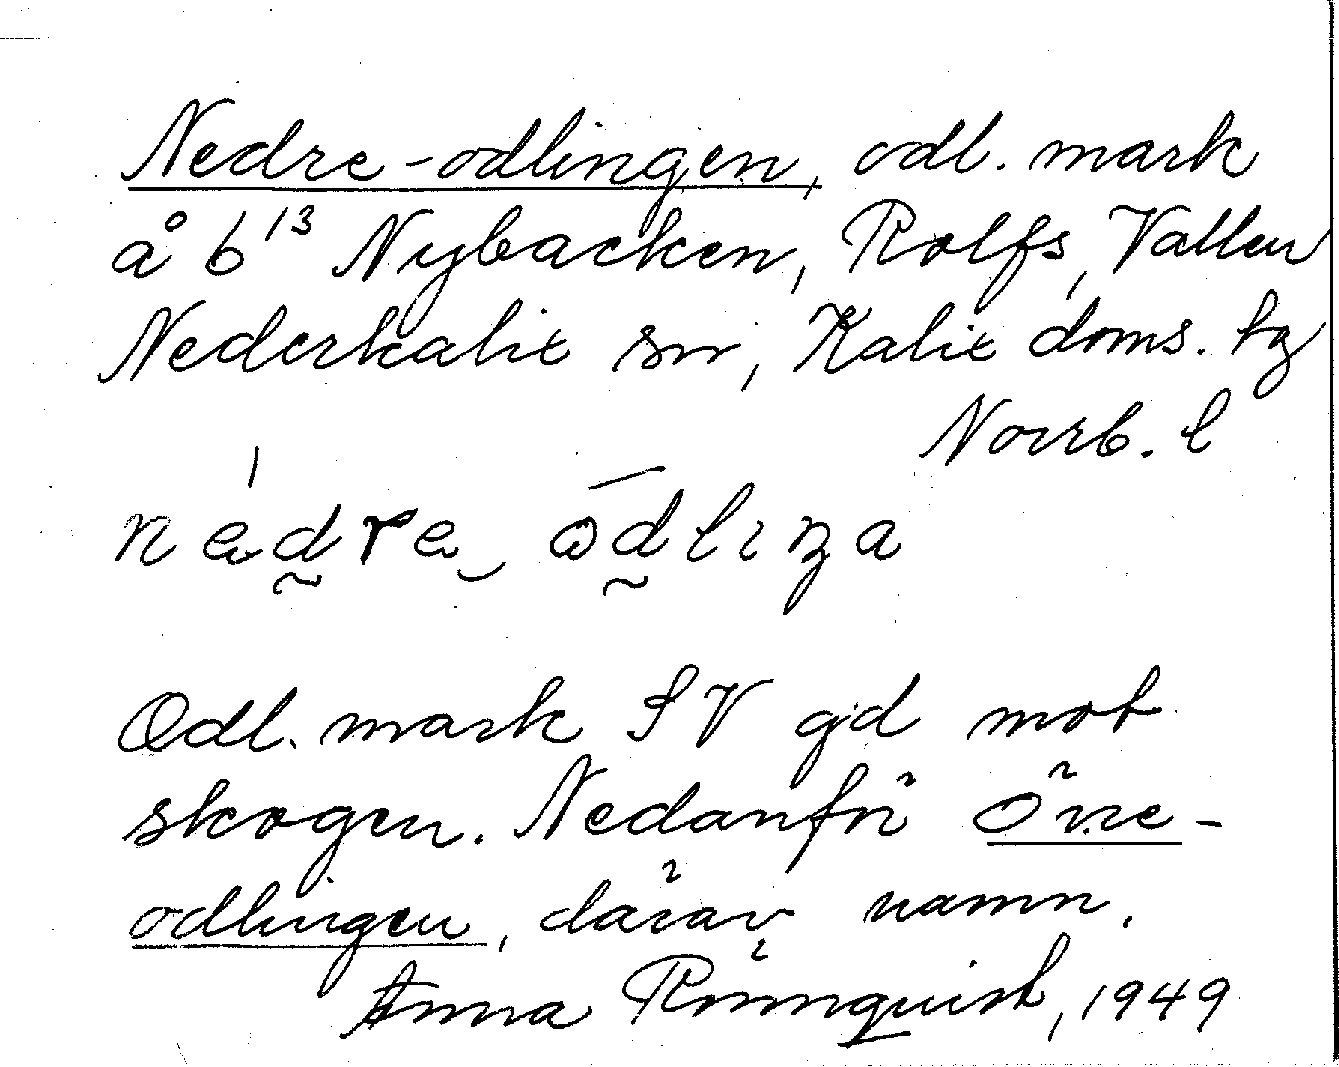 Nedre-odlingen, odl. mark
å 6¹³ Nybacken, Rolfs, Vallen
Nederkalix sn, Kalix doms. tg
Norrb. l
Odl. mark SV gd mot
skogen. Nedanför Övre-
odlingen, därav namn.
Anna Rönnquist, 1949